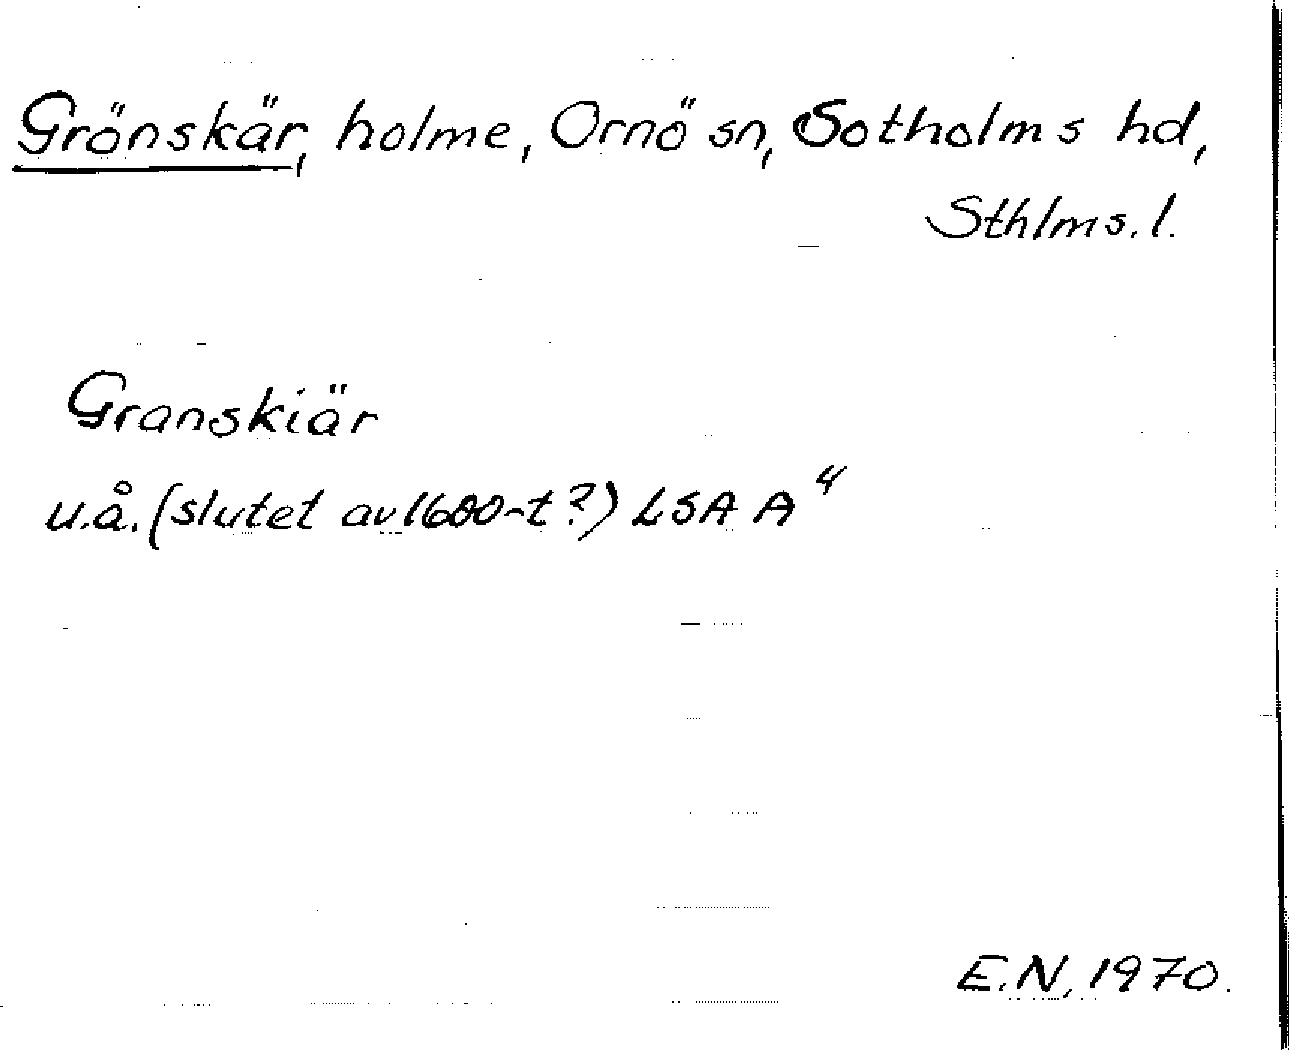 Grönskär, holme, Ornö sn, Sotholms hd,
Sthlms. l.
Granskiär
u.å. (slutet av 1600-t?) LSA A⁴
E.N, 1970.